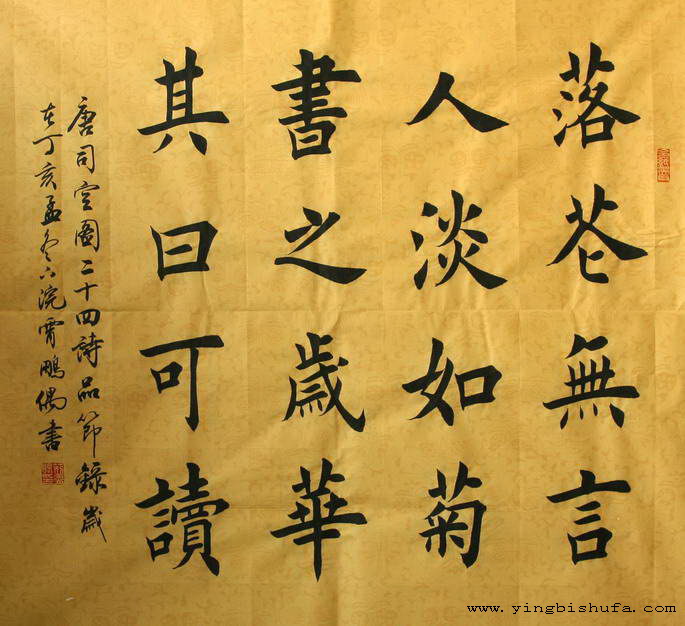 落花無言
人淡如菊
書之歲華
其曰可讀
唐司空圖二十四詩品節錄歲
在丁亥孟冬六浣霄鵬偶書
www.yingbishufa.com